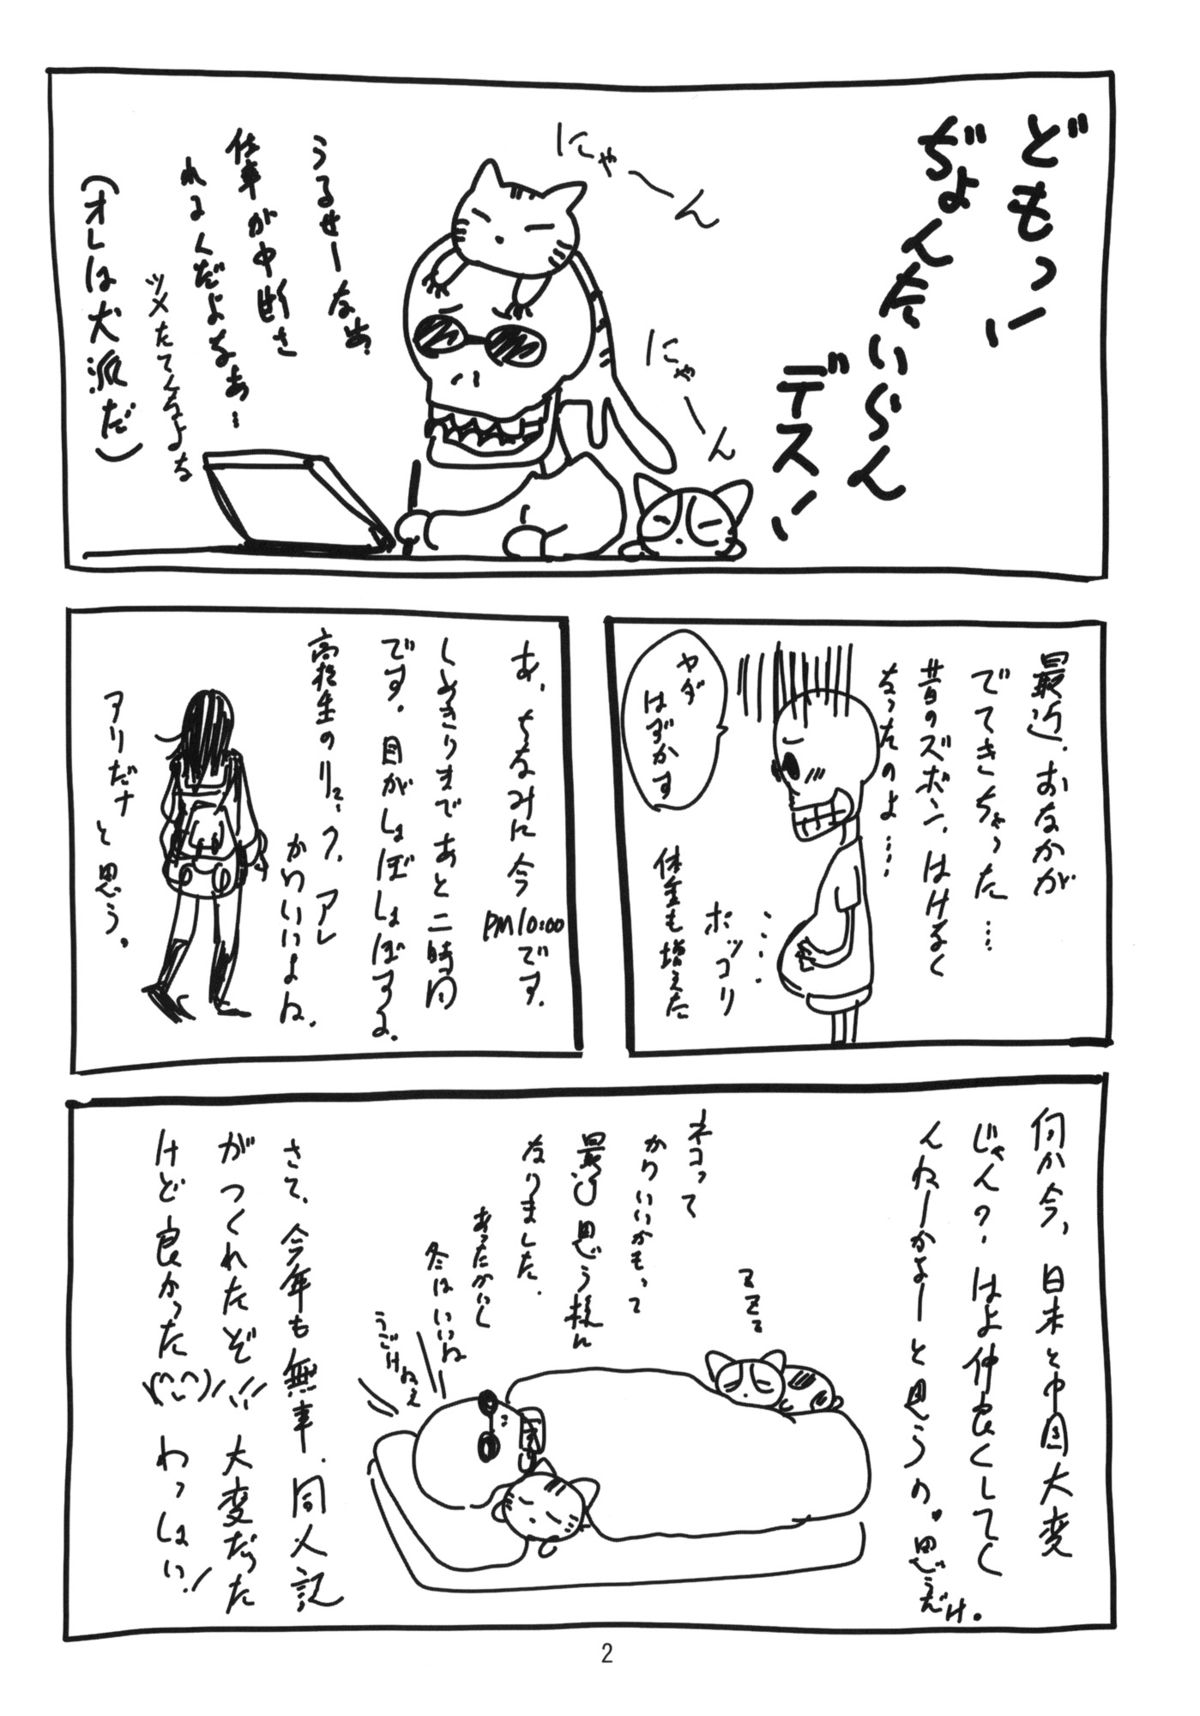 どもっ！
ぢょんたいらん
デス！
にゃーん
にゃーん
うるせーなぁ？
仕事が中断さ
れるんだよなぁ…
ツメたてんなよな
（オレは犬派だ）
最近、おなかが
でてきちゃった…
昔のズボン、はけなく
なったのよ…
ヤダ
はずかす
ポッコリ
体重も増えた
あ、ちなみに今
PM10:00です。
しめきりまであと二時間
です。目がしょぼしょぼするよ。
高校生のリュック、アレ
かわいいよね。
アリだナ
と思う。
何か今、日本と中国大変
じゃん？はよ仲良くしてく
んねーかなーと思うの。思うだけ。
ネコって
かわいいかもって
最近思う様に
なりました。
あったかいし
冬はいいね
うごけねぇ
ZZZZ
さて、今年も無事、同人誌
がつくれたぞ!!! 大変だった
けど良かった\(^^)/ わっしょい！
2